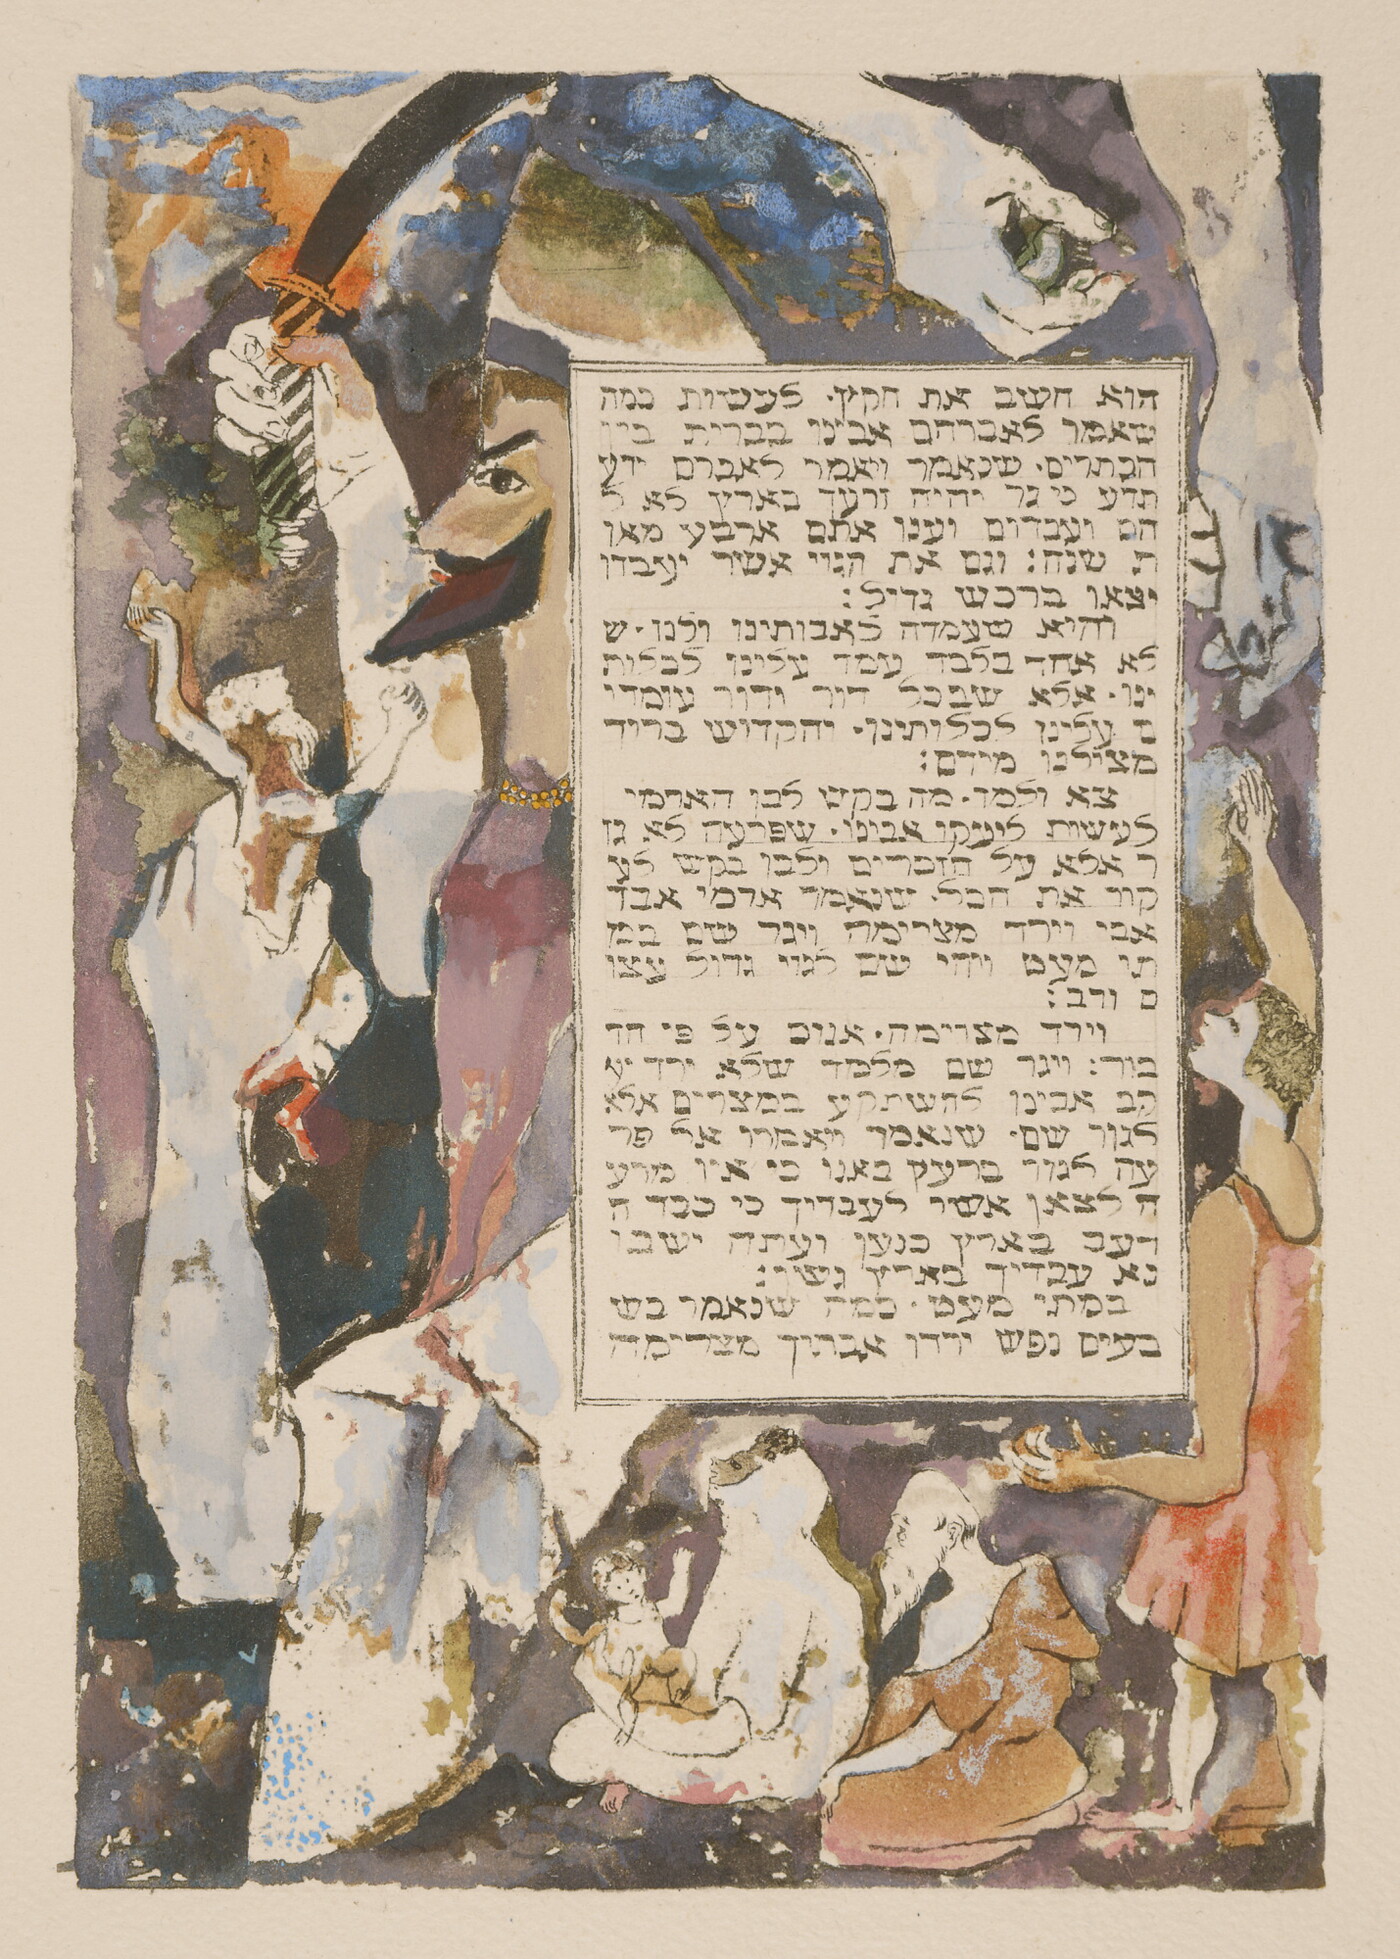 הוא חשב את הקץ. לעשות כמה
שאמר לאברהם אבינו בברית בין
הבתרים. שנאמר ויאמר לאברם ידע
תדע כי גר יהיה זרעך בארץ לא ל
הם ועבדום וענו אתם ארבע מאו
ת שנה: וגם את הגוי אשר יעבדו
יצאו ברכש גדול:
והיא שעמדה לאבותינו ולנו. ש
לא אחד בלבד עמד עלינו לכלות
ינו. אלא שבכל דור ודור עומדי
ם עלינו לכלותינו. והקדוש ברוך
מצילנו מידם:
צא ולמד. מה בקש לבן הארמי
לעשות ליעקן אבינו. שפרעה לא גז
ר אלא על הזכרים ולבן בקש לע
קור את הכל. שנאמר ארמי אבד
אבי וירד מצרימה ויגר שם במ
תי מעט ויהי שם לגוי גדול עצו
ם ורב:
וירד מצרימה. אנוס על פי הד
בור: ויגר שם מלמד שלא ירד יע
קב אבינו להשתקע במצרים אלא
לגור שם. שנאמר ויאמרו אל פר
עה לגור בארץ באנו כי אין מרע
ה לצאן אשר לעבדיך כי כבד ה
רעב בארץ כנען ועתה ישבו
נא עבדיך בארץ גשן:
במתי מעט. כמה שנאמר בש
בעים נפש ירדו אבתיך מצרימה